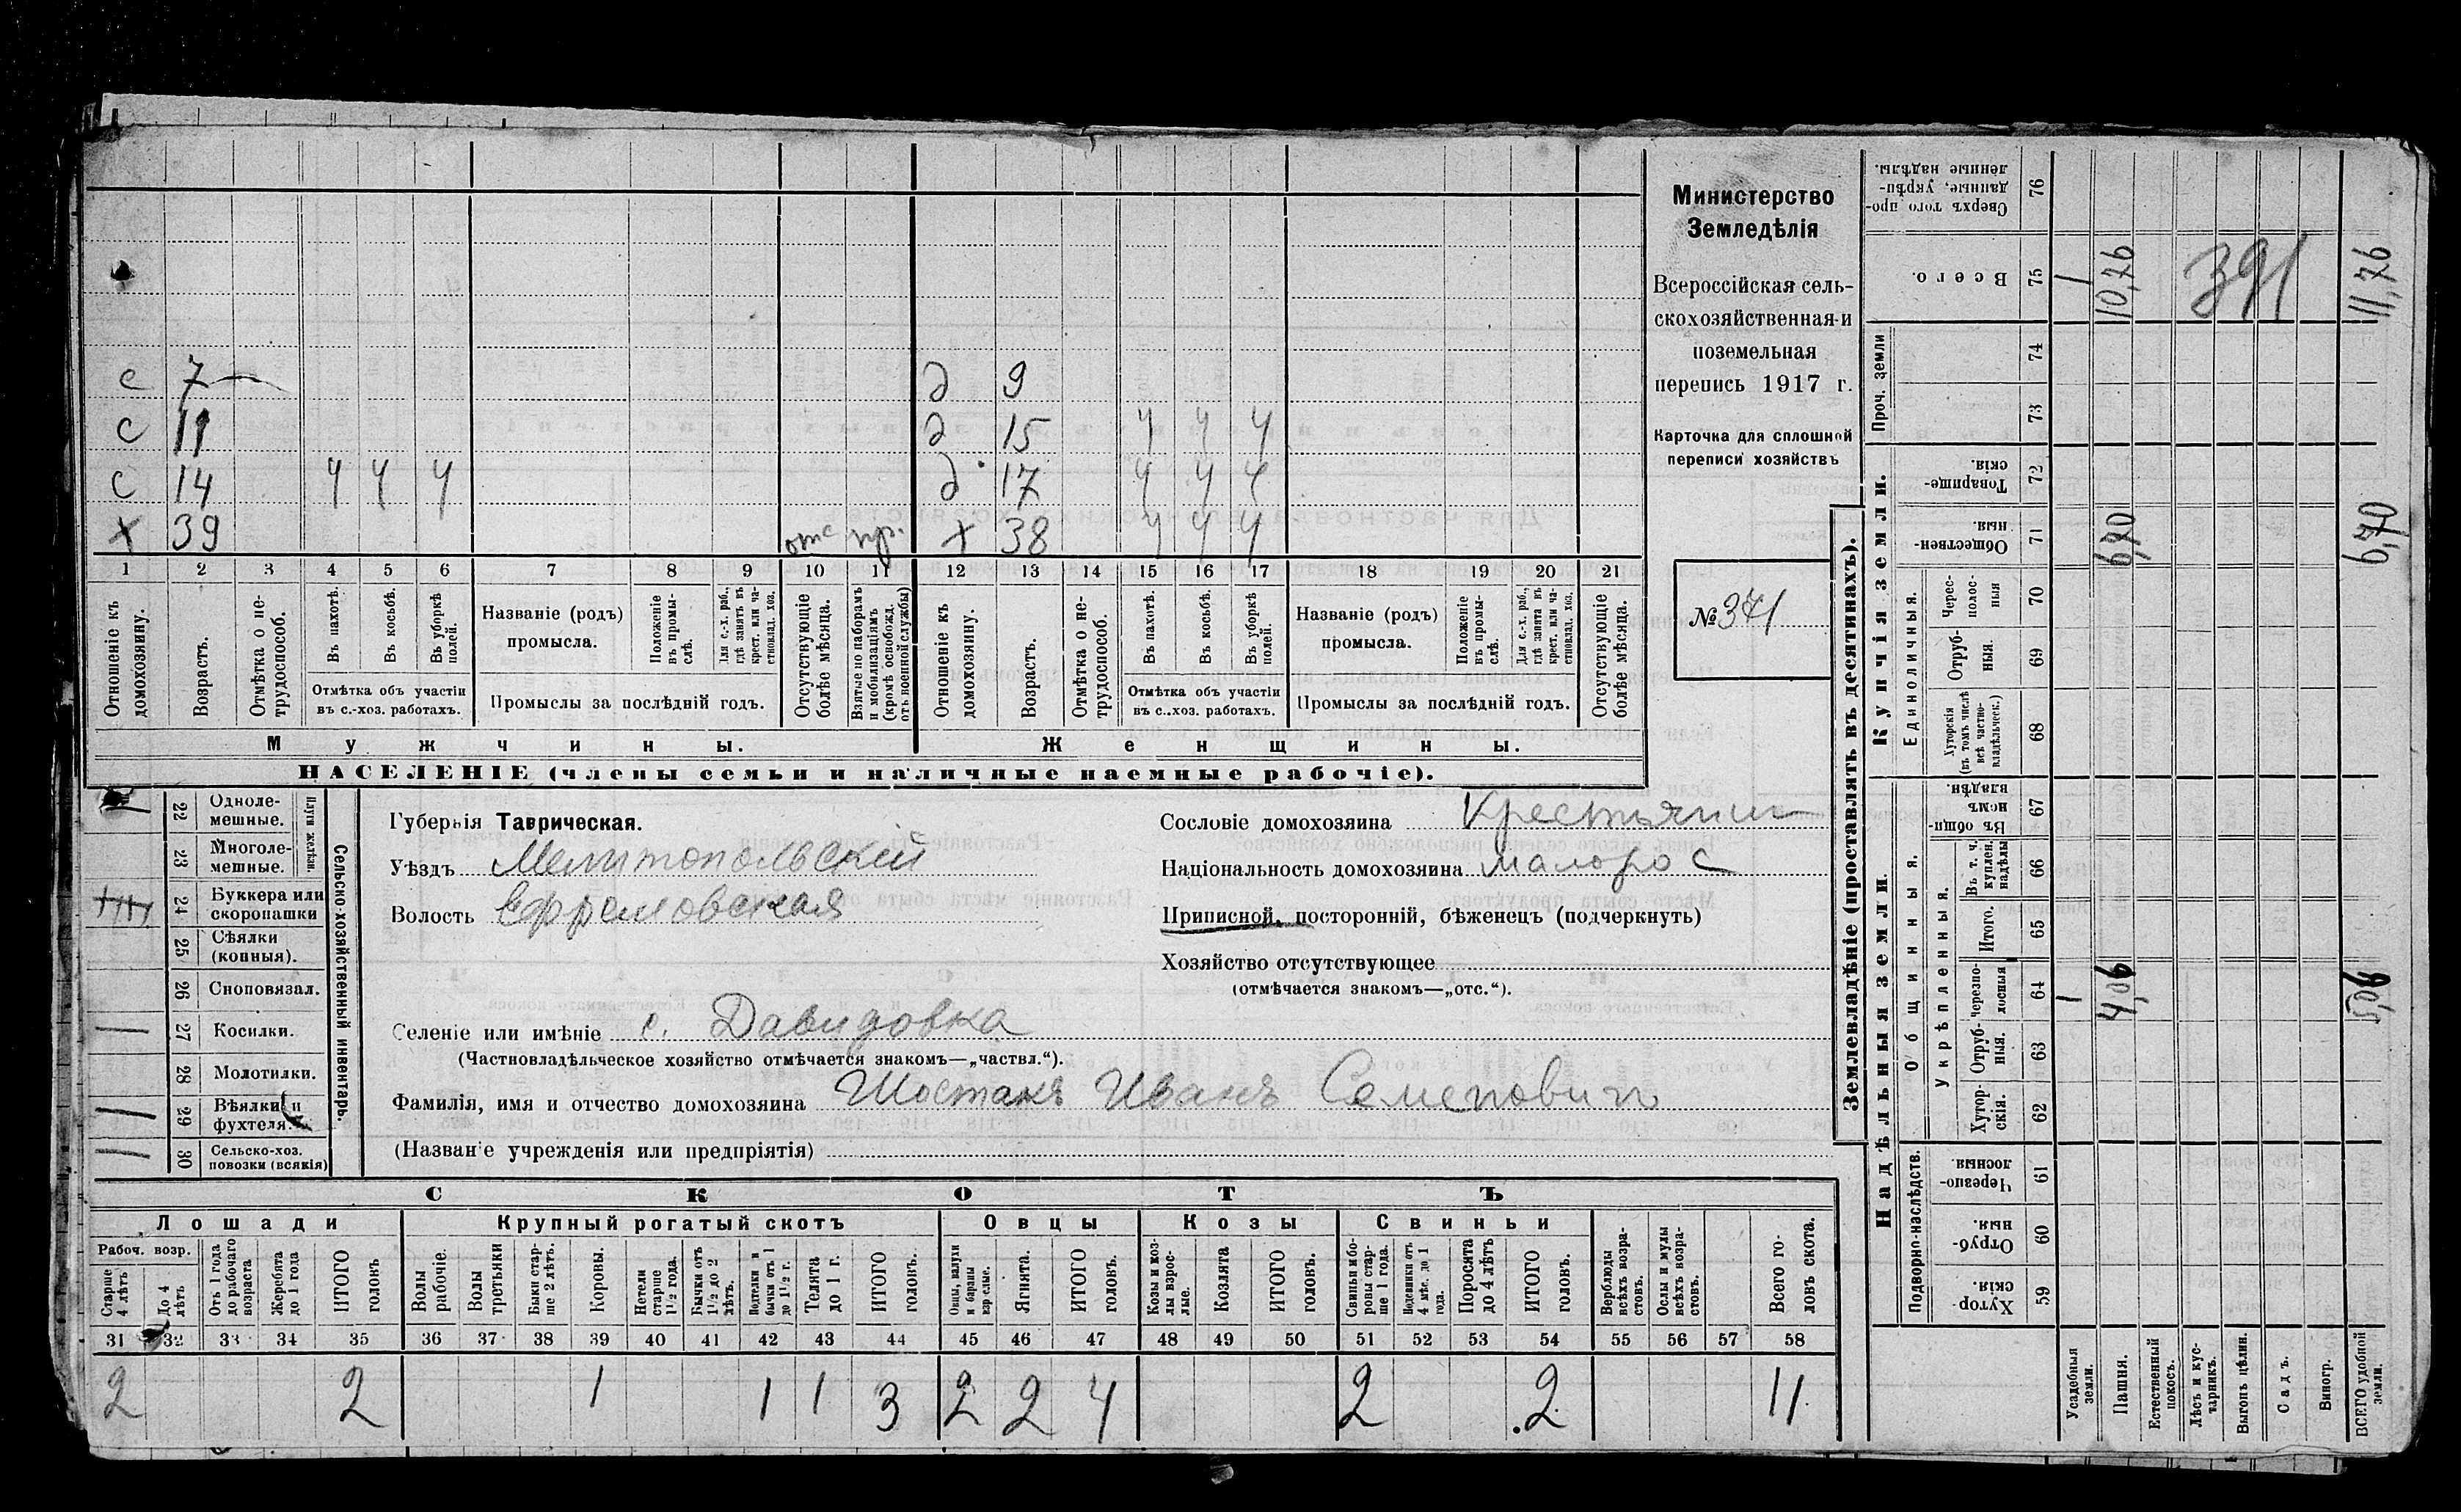 с 7 д 9
с 11 д 15 ч ч ч
с 14 ч ч ч д 17 ч ч ч
х 39 отс пр. х 38 ч ч ч
1 2 3 4 5 6 7 8 9 10 11 12 13 14 15 16 17 18 19 20 21
Отношеніе къ домохозяину.
Возрастъ.
Отмѣтка о не-трудоспособ.
Въ пахотѣ.
Въ косьбѣ.
Въ уборкѣ полей.
Отмѣтка объ участіи
въ с.-хоз. работахъ.
Названіе (родъ)
промысла.
Положеніе въ промы-слѣ.
Для с.-х. раб., гдѣ занятъ въ крест. или ча-стновлад. хоз.
Промыслы за послѣдній годъ.
Отсутствующіе болѣе мѣсяца.
Взятые по наборамъ и мобилизаціямъ (кромѣ освобожд. отъ военной службы)
Отношеніе къ домохозяину.
Возрастъ.
Отмѣтка о не-трудоспособ.
Въ пахотѣ.
Въ косьбѣ.
Въ уборкѣ полей.
Отмѣтка объ участіи
въ с.-хоз. работахъ.
Названіе (родъ)
промысла.
Положеніе въ промы-слѣ.
Для с.-х. раб., гдѣ занятъ въ крест. или ча-стновлад. хоз.
Промыслы за послѣдній годъ.
Отсутствующіе болѣе мѣсяца.
Мужчины. Женщины.
НАСЕЛЕНІЕ (члены семьи и наличные наемные рабочіе).
Министерство
Земледѣлія
Всероссійская сель-
скохозяйственная и
поземельная
перепись 1917 г.
Карточка для сплошной
переписи хозяйствъ
№ 371
22 Одноле-мешные.
23 Многоле-мешные.
Плуги желѣзн.
24 Буккера или скоропашки
25 Сѣялки (конныя).
26 Сноповязал.
27 Косилки.
28 Молотилки.
29 Вѣялки и фухтеля.
30 Сельско-хоз. повозки (всякія)
Сельско-хозяйственный инвентарь.
Губернія Таврическая.
Уѣздъ Мелитопольскій
Волость Ефремовская
Селеніе или имѣніе с. Давидовка
(Частновладѣльческое хозяйство отмѣчается знакомъ—„частвл.“).
Фамилія, имя и отчество домохозяина Шостакъ Иванъ Семенович
(Названіе учрежденія или предпріятія)
Сословіе домохозяина Крестьянин
Національность домохозяина малорос
Приписной, посторонній, бѣженецъ (подчеркнуть)
Хозяйство отсутствующее
(отмѣчается знакомъ—„отс.“).
СКОТЪ
Лошади Крупный рогатый скотъ Овцы Козы Свиньи
Рабоч. возр.
Старше 4 лѣтъ
До 4 лѣтъ
Отъ 1 года до рабочаго возраста
Жеребята до 1 года
ИТОГО головъ
Волы рабочіе.
Волы третьяки
Быки стар-ше 2 лѣтъ.
Коровы.
Нетели старше 1½ года.
Бычки отъ 1½ до 2 лѣтъ.
Телки и бычки отъ 1 до 1½ г.
Телята до 1 г.
ИТОГО головъ.
Овцы, валухи и бараны взрослые.
Ягнята.
ИТОГО головъ.
Козы и коз-лы взрос-лые.
Козлята
ИТОГО головъ.
Свиньи и бо-ровы стар-ше 1 года.
Подсвинки отъ 4 мѣс. до 1 года.
Поросята до 4 лѣтъ
ИТОГО головъ.
Верблюды всѣхъ возра-стовъ.
Ослы и мулы всѣхъ возра-стовъ.
Всего го-ловъ скота.
31 32 33 34 35 36 37 38 39 40 41 42 43 44 45 46 47 48 49 50 51 52 53 54 55 56 57 58
2 2 1 1 1 3 2 2 4 2 2 11
Землевладѣніе (проставлять въ десятинахъ).
Надѣльныя земли. Купчія земли. Проч. земли
Подворно-наслѣдств. Общинныя. Укрѣпленныя. Единоличныя.
Сверхъ того про-данные, укрѣп-ленные надѣлы. 76
Всего. 75 1 10,76 391 11,76
74
73
Товарище-скія. 72
Обществен-ныя. 71 6,70 6,70
Черес-полос-ныя 70
Отруб-ныя 69
Хуторскія (въ томъ числѣ всѣ частно-владѣльческ.) 68
Въ общи-номъ владѣн. 67
Въ т. ч. куплен. надѣлы 66
Итого. 65
Черезпо-лосныя 64 1
Отруб-ныя. 63
Хутор-скія. 62
Черезпо-лосныя. 61
Отруб-ныя. 60
Хутор-скія. 59
Усадебныя земли.
Пашня.
Естественный покосъ.
Лѣсъ и кус-тарникъ.
Выгонъ цѣлин.
Садъ.
Виногр.
ВСЕГО удобной земли.